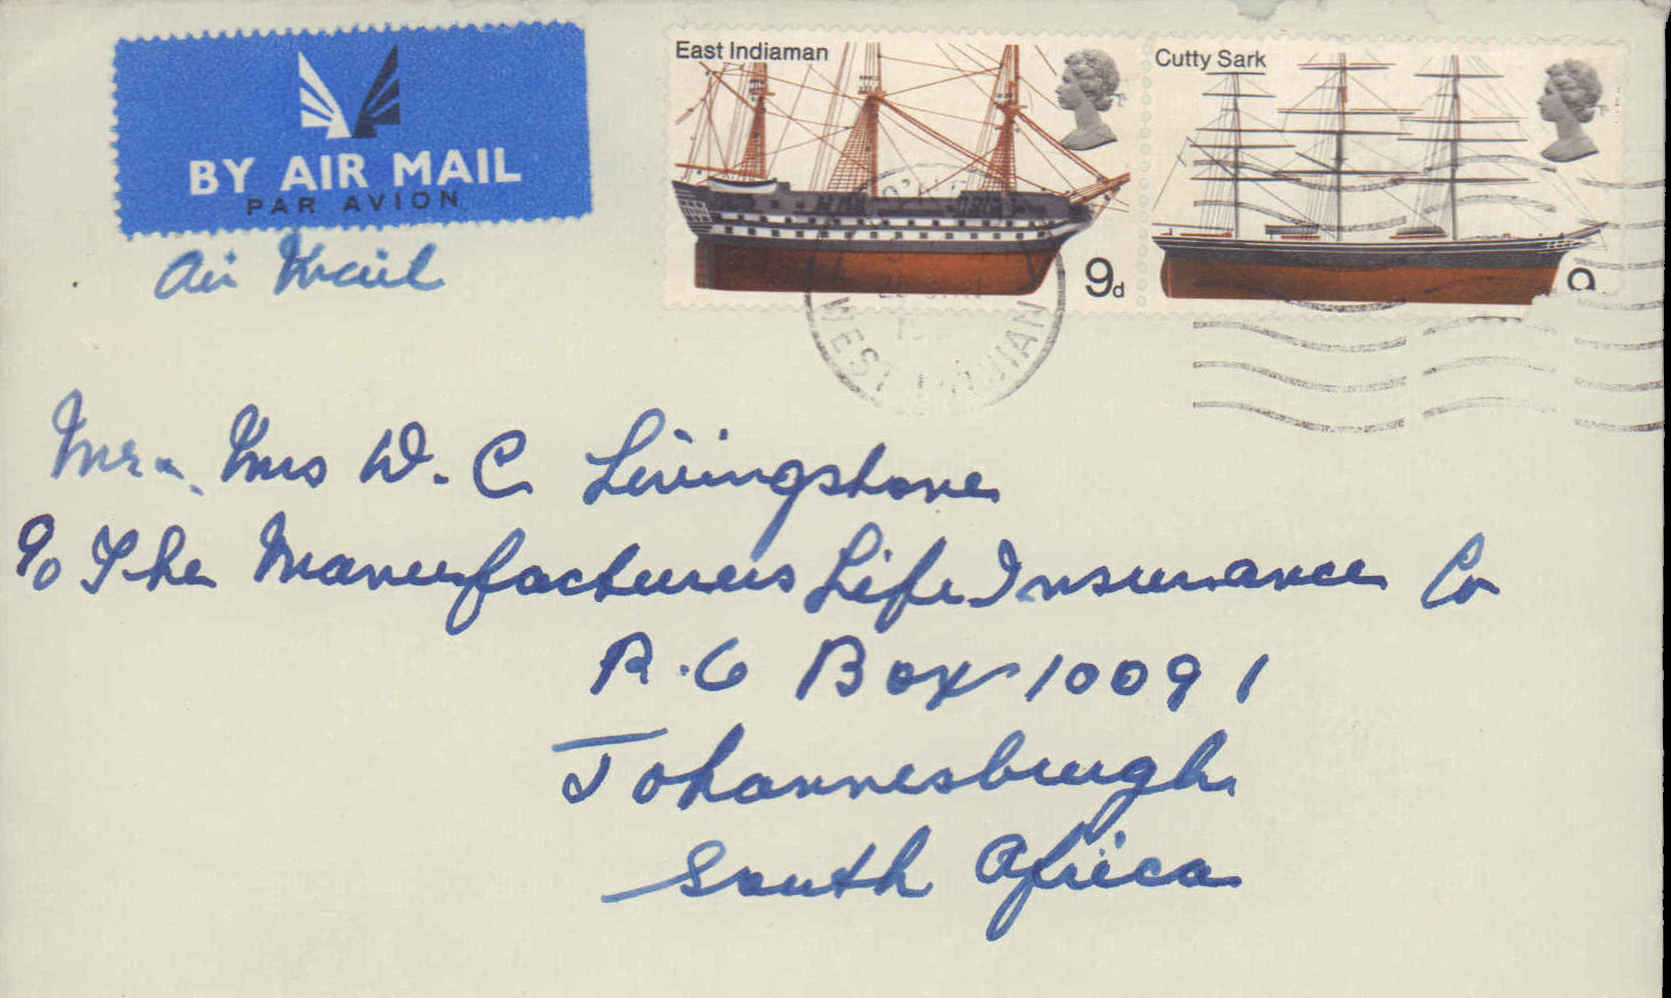 BY AIR MAIL
PAR AVION
Air Mail
East Indiaman
9d
Cutty Sark
9
WEST
Mr & Mrs W. C Livingstone
c/o The Manufacturers Life Insurance Co
P.O Box 10091
Johannesburgh
South Africa